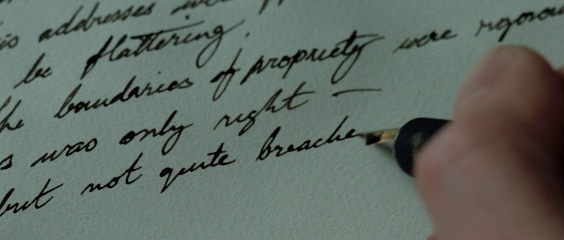 is addresses were
be flattering.
the boundaries of propriety were rigorou
s was only right —
but not quite breache